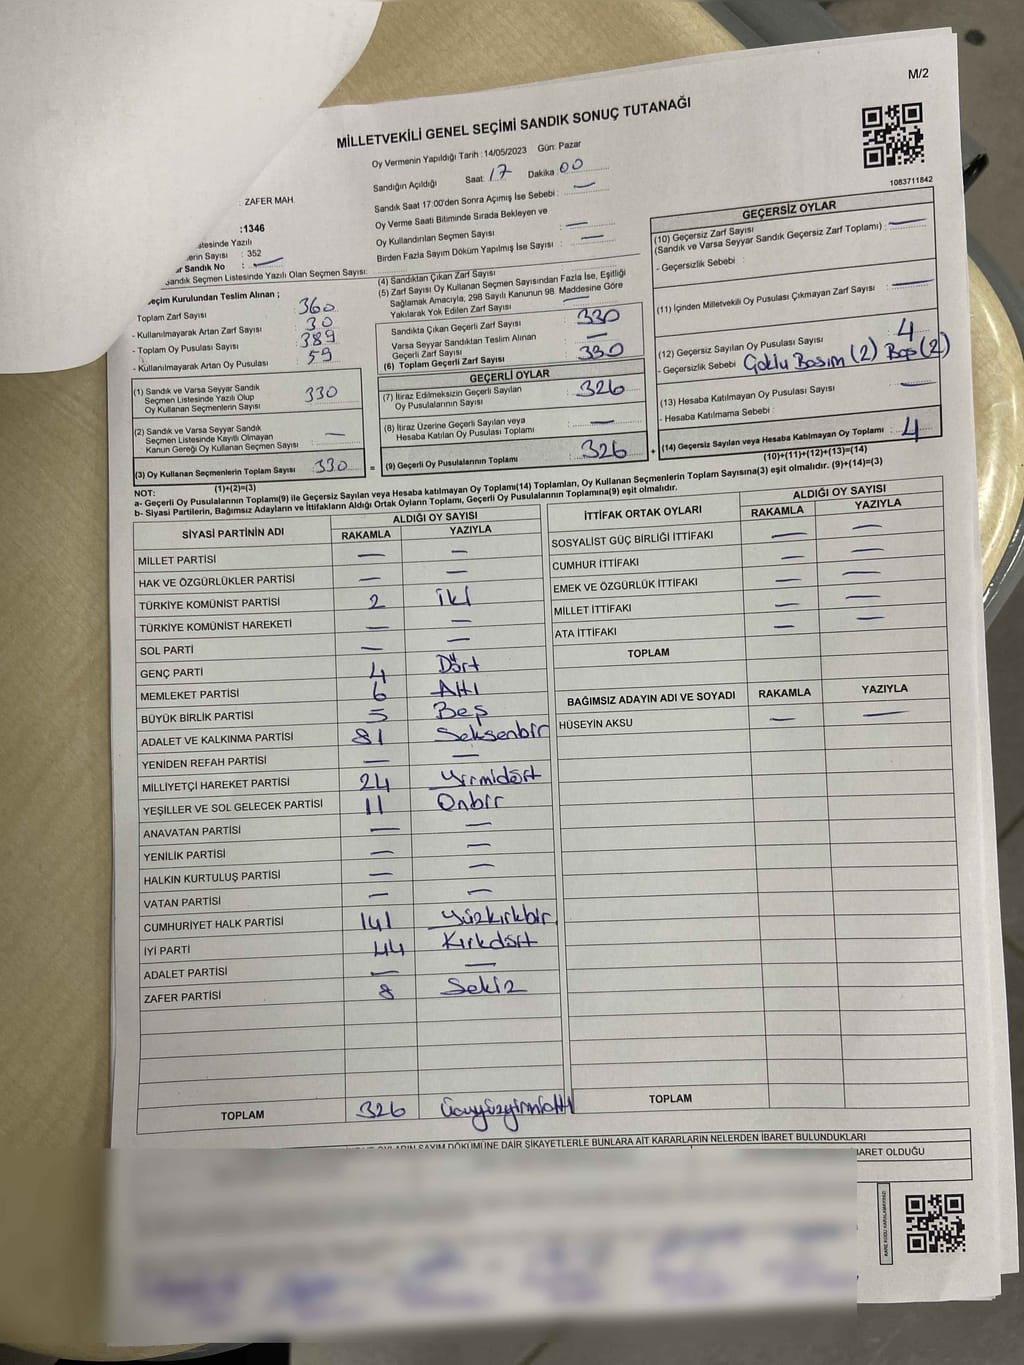 M/2
MİLLETVEKİLİ GENEL SEÇİMİ SANDIK SONUÇ TUTANAĞI
Oy Vermenin Yapıldığı Tarih : 14/05/2023 Gün: Pazar
Sandığın Açıldığı Saat: 17 Dakika: 00
Sandık Saat 17:00'den Sonra Açılmış İse Sebebi : —
Oy Verme Saati Bitiminde Sırada Bekleyen ve
Oy Kullandırılan Seçmen Sayısı : —
Birden Fazla Sayım Döküm Yapılmış İse Sayısı : —
1083711842
ZAFER MAH.
:1346
Listesinde Yazılı
Sayısı : 352
Sandık No : —
Sandık Seçmen Listesinde Yazılı Olan Seçmen Sayısı:
Seçim Kurulundan Teslim Alınan ;
Toplam Zarf Sayısı : 360
- Kullanılmayarak Artan Zarf Sayısı : 30
- Toplam Oy Pusulası Sayısı : 389
- Kullanılmayarak Artan Oy Pusulası : 59
(1) Sandık ve Varsa Seyyar Sandık
Seçmen Listesinde Yazılı Olup
Oy Kullanan Seçmenlerin Sayısı : 330
(2) Sandık ve Varsa Seyyar Sandık
Seçmen Listesinde Kayıtlı Olmayan
Kanun Gereği Oy Kullanan Seçmen Sayısı : —
(3) Oy Kullanan Seçmenlerin Toplam Sayısı : 330
(1)+(2)=(3)
(4) Sandıktan Çıkan Zarf Sayısı :
(5) Zarf Sayısı Oy Kullanan Seçmen Sayısından Fazla İse, Eşitliği
Sağlamak Amacıyla, 298 Sayılı Kanunun 98. Maddesine Göre
Yakılarak Yok Edilen Zarf Sayısı : —
Sandıkta Çıkan Geçerli Zarf Sayısı : 330
Varsa Seyyar Sandıktan Teslim Alınan
Geçerli Zarf Sayısı : —
(6) Toplam Geçerli Zarf Sayısı : 330
GEÇERLİ OYLAR
(7) İtiraz Edilmeksizin Geçerli Sayılan
Oy Pusulalarının Sayısı : 326
(8) İtiraz Üzerine Geçerli Sayılan veya
Hesaba Katılan Oy Pusulası Toplamı : —
= (9) Geçerli Oy Pusulalarının Toplamı : 326 +
GEÇERSİZ OYLAR
(10) Geçersiz Zarf Sayısı
(Sandık ve Varsa Seyyar Sandık Geçersiz Zarf Toplamı) : —
- Geçersizlik Sebebi :
(11) İçinden Milletvekili Oy Pusulası Çıkmayan Zarf Sayısı : —
(12) Geçersiz Sayılan Oy Pusulası Sayısı : 4
- Geçersizlik Sebebi Çoklu Basım (2) Boş (2)
(13) Hesaba Katılmayan Oy Pusulası Sayısı : —
- Hesaba Katılmama Sebebi :
(14) Geçersiz Sayılan veya Hesaba Katılmayan Oy Toplamı : 4
(10)+(11)+(12)+(13)=(14)
NOT:
a- Geçerli Oy Pusulalarının Toplamı(9) ile Geçersiz Sayılan veya Hesaba katılmayan Oy Toplamı(14) Toplamları, Oy Kullanan Seçmenlerin Toplam Sayısına(3) eşit olmalıdır. (9)+(14)=(3)
b- Siyasi Partilerin, Bağımsız Adayların ve İttifakların Aldığı Ortak Oyların Toplamı, Geçerli Oy Pusulalarının Toplamına(9) eşit olmalıdır.
SİYASİ PARTİNİN ADI ALDIĞI OY SAYISI
RAKAMLA YAZIYLA
MİLLET PARTİSİ — —
HAK VE ÖZGÜRLÜKLER PARTİSİ — —
TÜRKİYE KOMÜNİST PARTİSİ 2 İki
TÜRKİYE KOMÜNİST HAREKETİ — —
SOL PARTİ — —
GENÇ PARTİ 4 Dört
MEMLEKET PARTİSİ 6 Altı
BÜYÜK BİRLİK PARTİSİ 5 Beş
ADALET VE KALKINMA PARTİSİ 81 Seksenbir
YENİDEN REFAH PARTİSİ — —
MİLLİYETÇİ HAREKET PARTİSİ 24 Yirmidört
YEŞİLLER VE SOL GELECEK PARTİSİ 11 Onbir
ANAVATAN PARTİSİ — —
YENİLİK PARTİSİ — —
HALKIN KURTULUŞ PARTİSİ — —
VATAN PARTİSİ — —
CUMHURİYET HALK PARTİSİ 141 Yüzkırkbir
İYİ PARTİ 44 Kırkdört
ADALET PARTİSİ — —
ZAFER PARTİSİ 8 Sekiz
TOPLAM 326 Üçyüzyirmialtı
İTTİFAK ORTAK OYLARI ALDIĞI OY SAYISI
RAKAMLA YAZIYLA
SOSYALİST GÜÇ BİRLİĞİ İTTİFAKI — —
CUMHUR İTTİFAKI — —
EMEK VE ÖZGÜRLÜK İTTİFAKI — —
MİLLET İTTİFAKI — —
ATA İTTİFAKI — —
TOPLAM
BAĞIMSIZ ADAYIN ADI VE SOYADI RAKAMLA YAZIYLA
HÜSEYİN AKSU — —
TOPLAM
SAYIM DÖKÜMÜNE DAİR ŞİKAYETLERLE BUNLARA AİT KARARLARIN NELERDEN İBARET BULUNDUKLARI
İBARET OLDUĞU
KARE KODU KARALAMAYINIZ!